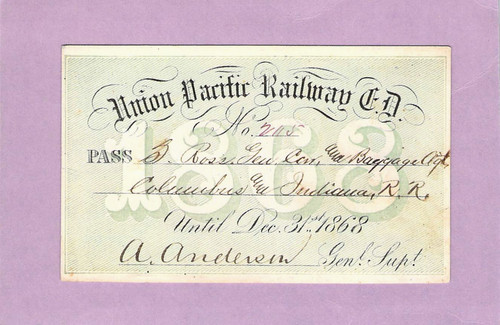 Union Pacific Railway E.D.
No. 205
1868
PASS S. Ross, Gen Con, & Baggage Agt
Columbus & Indiana, R. R.
Until Dec. 31st 1868
A. Anderson Genl. Supt.